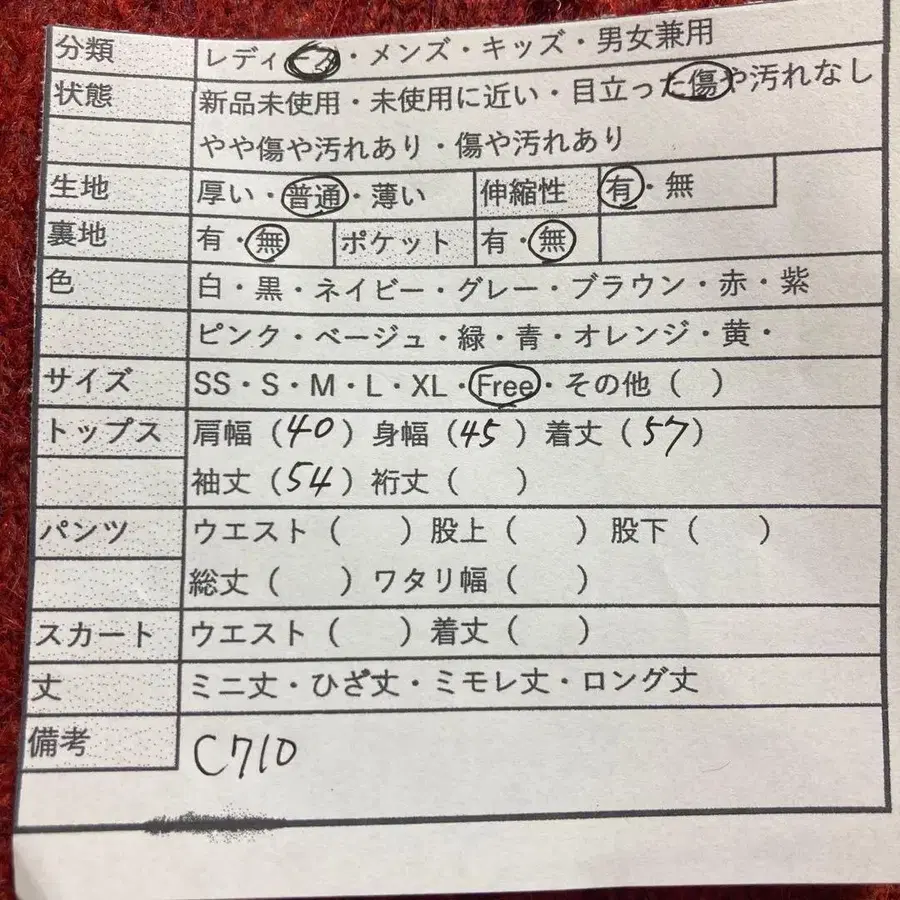 分類 レディース・メンズ・キッズ・男女兼用
状態 新品未使用・未使用に近い・目立った傷や汚れなし
やや傷や汚れあり・傷や汚れあり
生地 厚い・普通・薄い 伸縮性 有・無
裏地 有・無 ポケット 有・無
色 白・黒・ネイビー・グレー・ブラウン・赤・紫
ピンク・ベージュ・緑・青・オレンジ・黄・
サイズ SS・S・M・L・XL・Free・その他（ ）
トップス 肩幅（40）身幅（45）着丈（57）
袖丈（54）裄丈（ ）
パンツ ウエスト（ ）股上（ ）股下（ ）
総丈（ ）ワタリ幅（ ）
スカート ウエスト（ ）着丈（ ）
丈 ミニ丈・ひざ丈・ミモレ丈・ロング丈
備考 C710